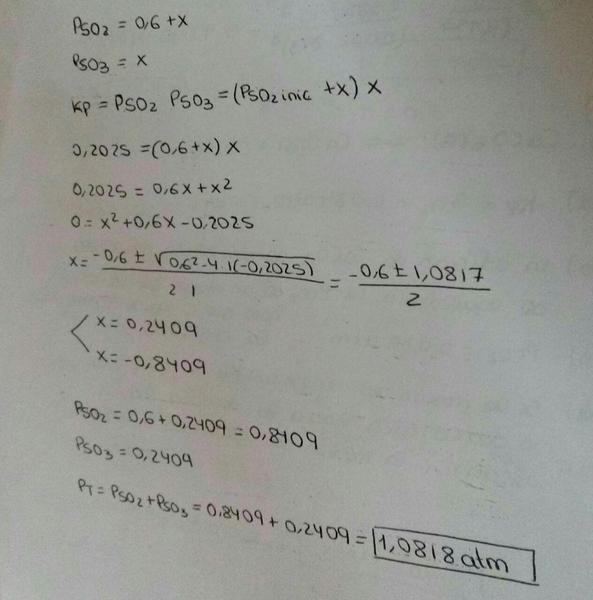 PSO2 = 0,6 + x
PSO3 = x
KP = PSO2 PSO3 = (PSO2 inic + x) x
0,2025 = (0,6 + x) x
0,2025 = 0,6x + x²
0 = x² + 0,6x - 0,2025
x = -0,6 ± √0,6² - 4 · 1(-0,2025) / 2 1 = -0,6 ± 1,0817 / 2
x = 0,2409
x = -0,8409
PSO2 = 0,6 + 0,2409 = 0,8409
PSO3 = 0,2409
PT = PSO2 + PSO3 = 0,8409 + 0,2409 = 1,0818 atm